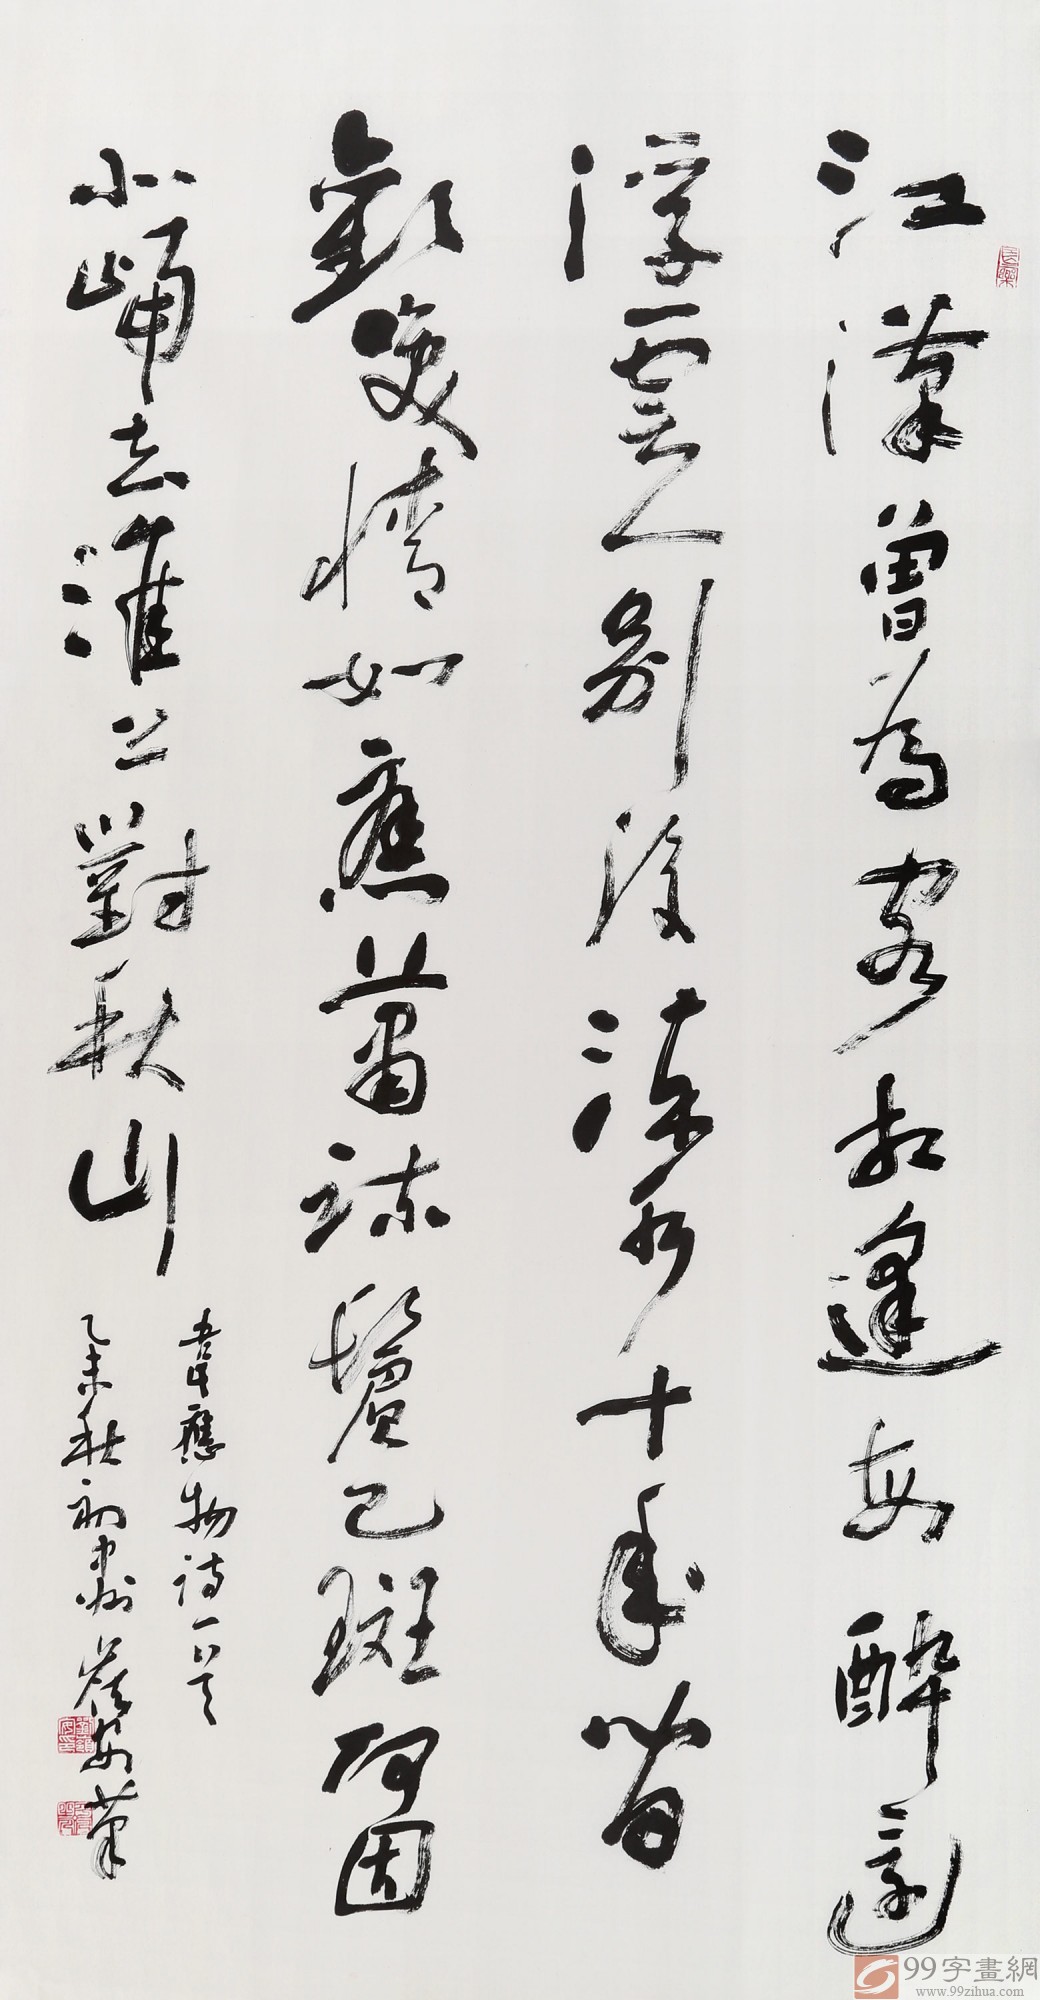 江漢曾為客相逢每醉還
浮雲一別後流水十年間
歡笑情如舊蕭疏鬢已斑何因
北歸去淮上對秋山
韋應物詩一首
乙未秋初中州
99字畫網
www.99zihua.com